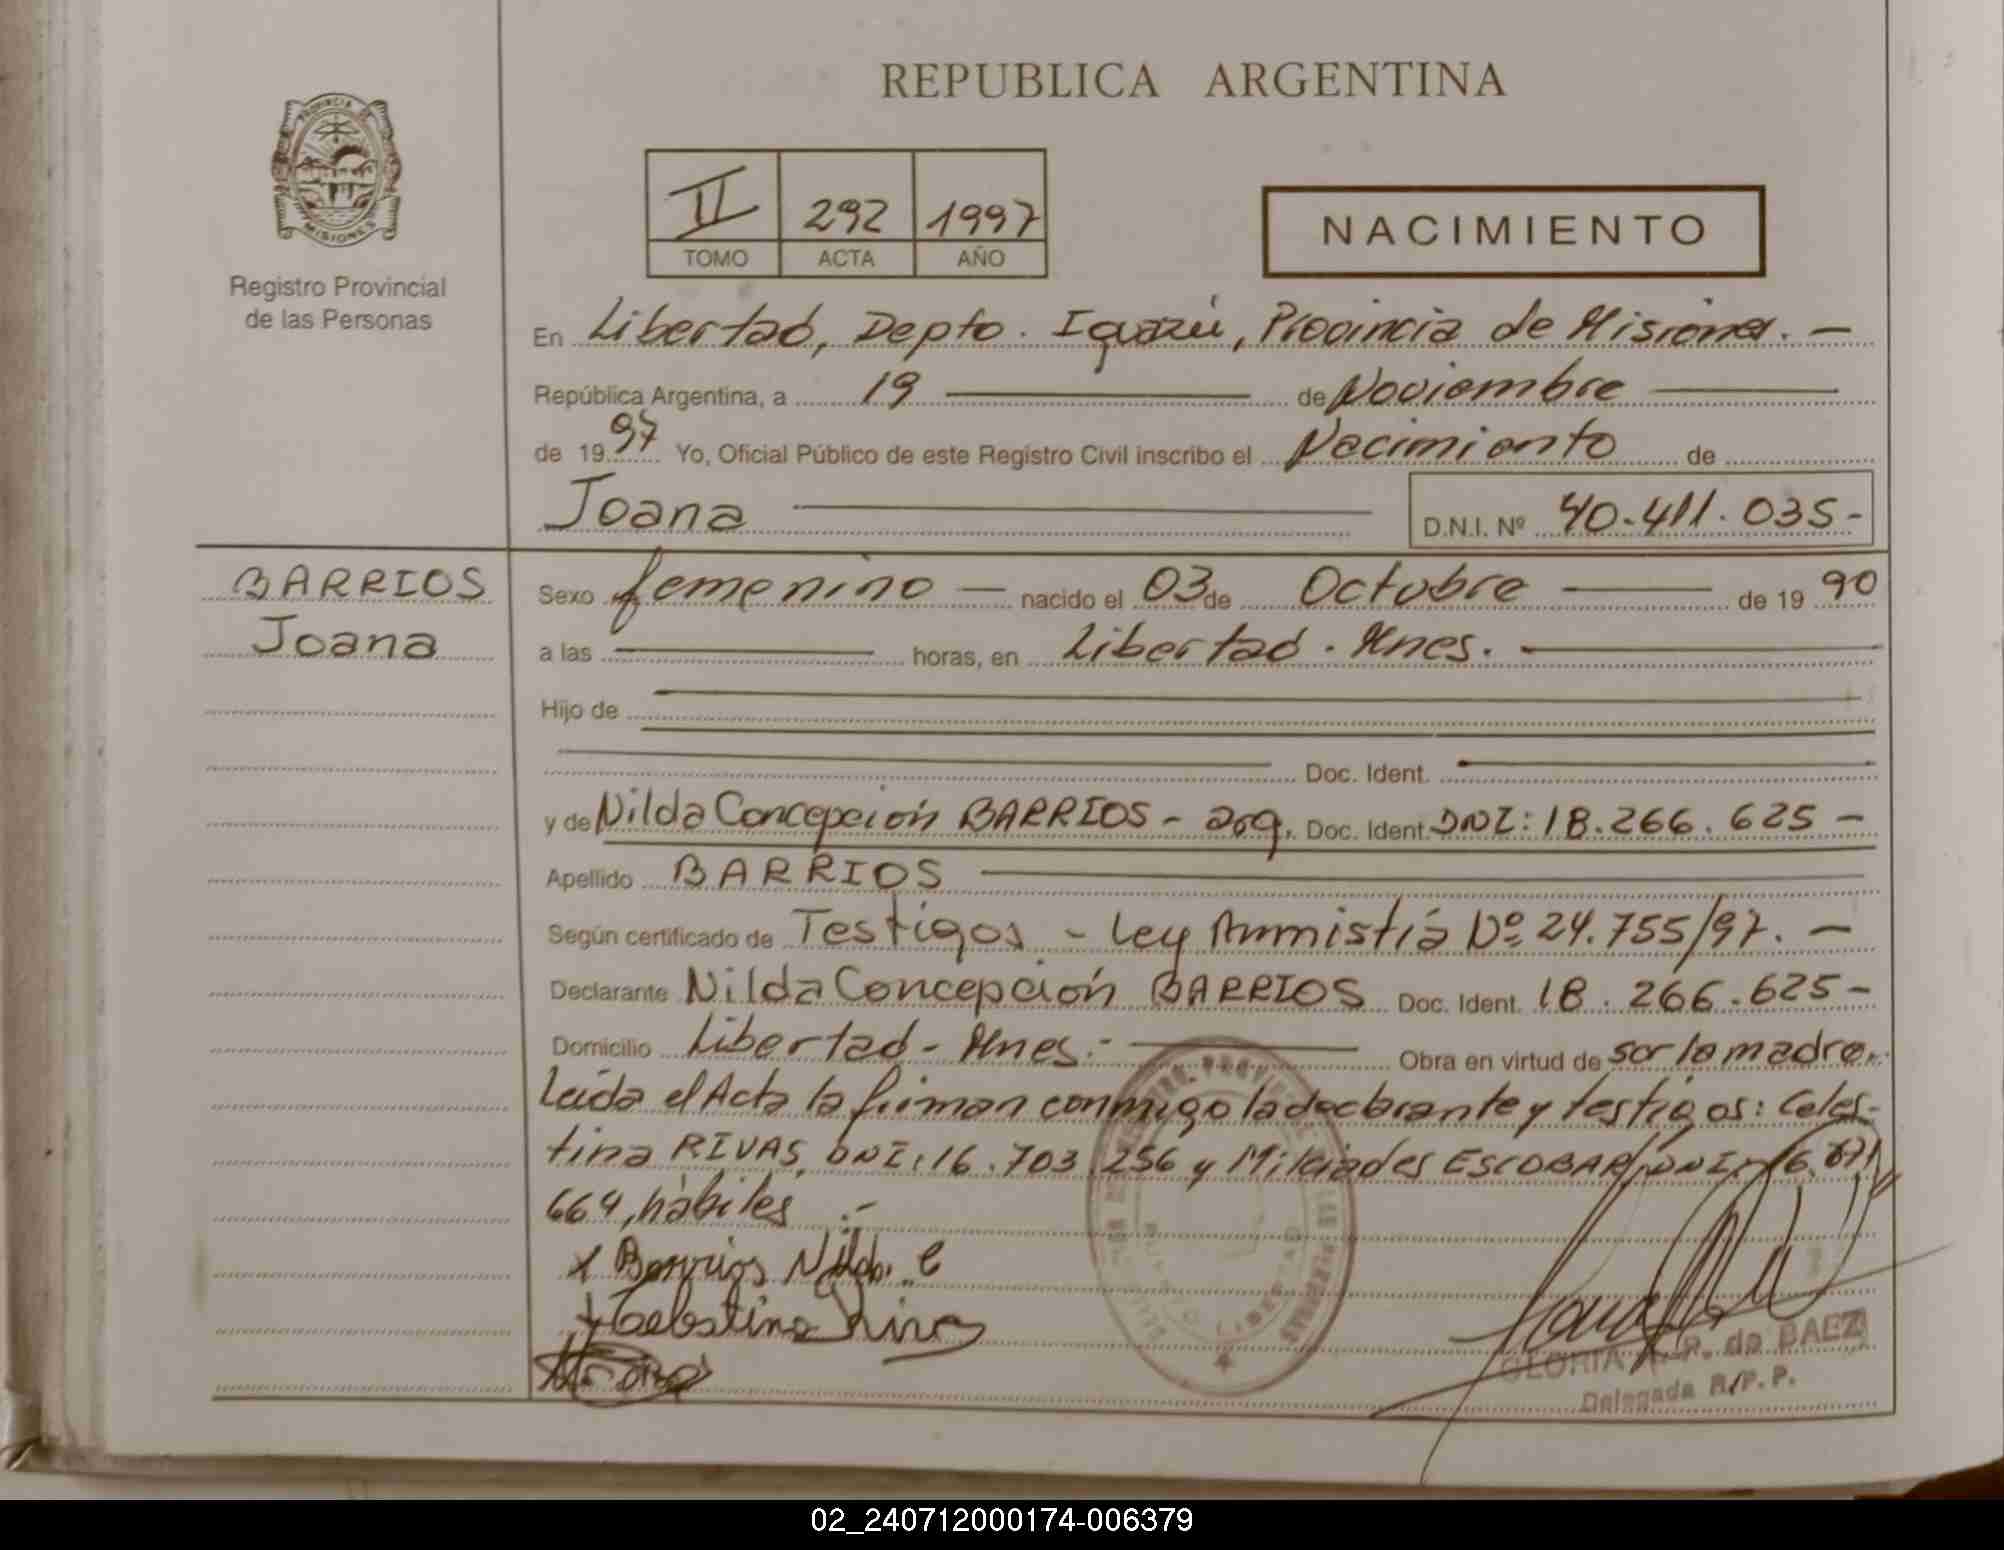 REPUBLICA ARGENTINA
PROVINCIA DE MISIONES
Registro Provincial
de las Personas
II 292 1997
TOMO ACTA AÑO
NACIMIENTO
En Libertad, Depto. Iguazú, Provincia de Misiones. —
República Argentina, a 19 — de Noviembre —
de 1997 Yo, Oficial Público de este Registro Civil inscribo el Nacimiento de
Joana — D.N.I. Nº 40.411.035-
BARRIOS
Joana
Sexo femenino — nacido el 03 de Octubre — de 1990
a las — horas, en Libertad. Mnes. —
Hijo de —
— Doc. Ident. —
y de Nilda Concepción BARRIOS - arg. Doc. Ident. DNI: 18.266.625 —
Apellido BARRIOS —
Según certificado de Testigos - Ley Anmistía Nº 24.755/97. —
Declarante Nilda Concepción BARRIOS Doc. Ident. 18.266.625 —
Domicilio Libertad - Mnes.- — Obra en virtud de ser la madre.
Leída el Acta la firman conmigo la declarante y testigos: Celes-
tina RIVAS, DNI: 16.703.256 y Milciades ESCOBAR, DNI: 16.871
664, hábiles .-
x Barrios Nilda. C
x Celestina Riva
GLORIA P. de BAEZ
Delegada R.P.P.
02_240712000174-006379